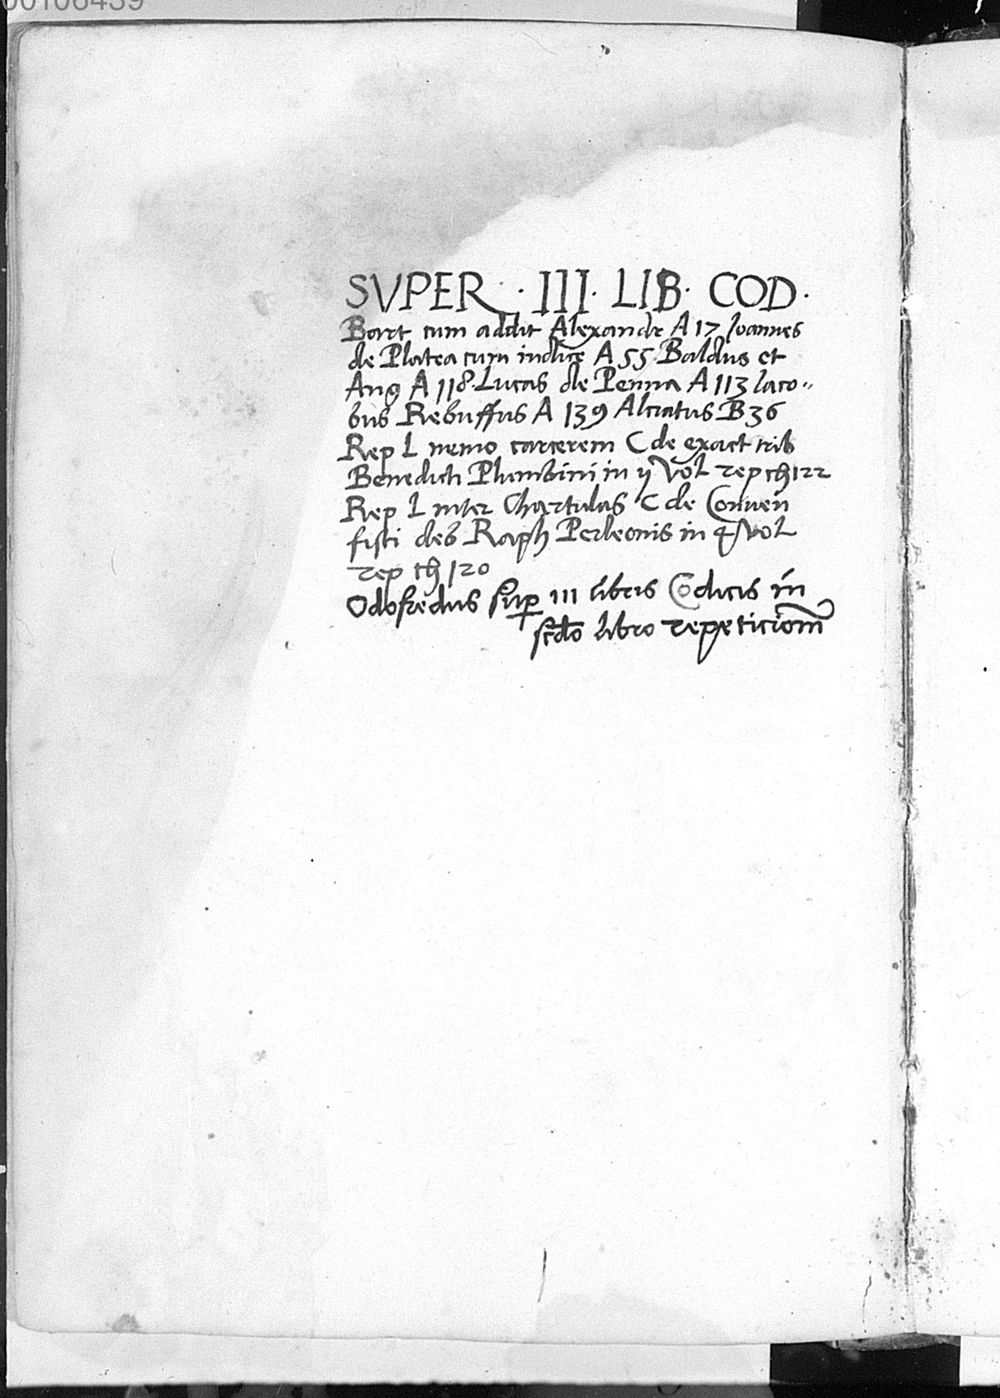 00106439
SVPER · III · LIB · COD ·
Bart cum addit Alexandr A 17 Ioannes
de Platea cum indice A 55 Baldus et
Ang A 118 Lucas de Penna A 113 Iaco-
bus Rebuffus A 139 Alciatus B 36
Rep L nemo carcerem C de exact trib
Benedicti Plumbini in ij Vol rep ch 122
Rep L inter Chartulas C de Conven
fisci deb Raph Perleonis in 4 Vol
rep ch 120
Odofredus sup III libris Codicis in
scdo libro repeticionum